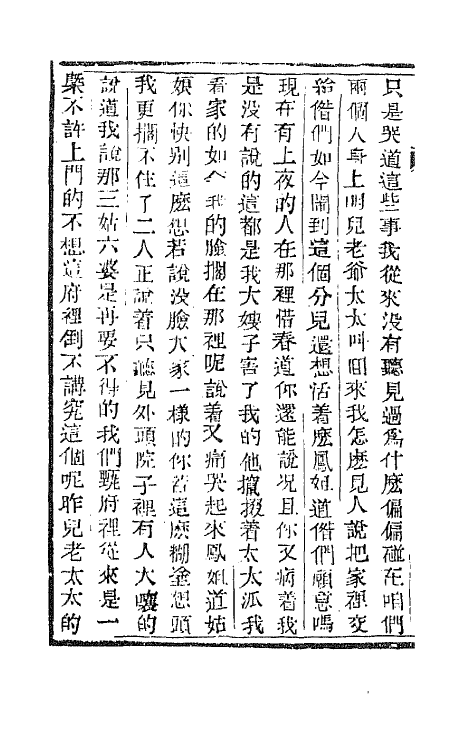 只是哭道這些事我從來没有聽見過爲什麽偏偏碰在咱們
兩個人身上明兒老爺太太叫回來我怎麽見人說把家裡交
給偺們如今鬧到這個分兒還想活着麽鳳姐道偺們願意嗎
現在有上夜的人在那裡惜春道你還能說况且你又病着我
是没有說的這都是我大嫂子害了我的他攛掇着太太派我
看家的如今我的臉擱在那裡呢說着又痛哭起來鳳姐道姑
娘你快别這麽想若說没臉大家一様的你若這麽糊塗想頭
我更擱不住了二人正說着只聽見外頭院子裡有人大嚷的
說道我說那三姑六婆是再要不得的我們甄府裡從來是一
槩不許上門的不想這府裡倒不講究這個呢昨兒老太太的